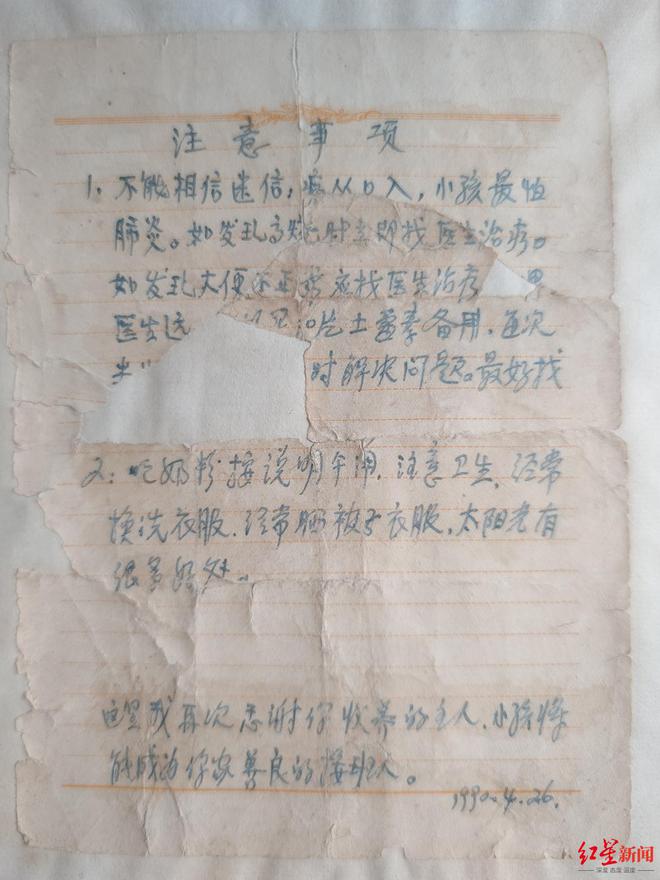 注意事项
1、不能相信迷信，病从口入，小孩最怕
肺炎。如发现高烧 即找医生治疗。
如发现大便不正常应找医生治疗
医生远 土霉素备用，每次
时解决问题。最好找
2：吃奶粉按说明牛用，注意卫生，经常
换洗衣服，经常晒被子衣服，太阳光有
很多好处。
我再次感谢你收养的主人，小孩将
能成为你家善良的接班人。
1990.4.26.
红星新闻
深度 态度 温度